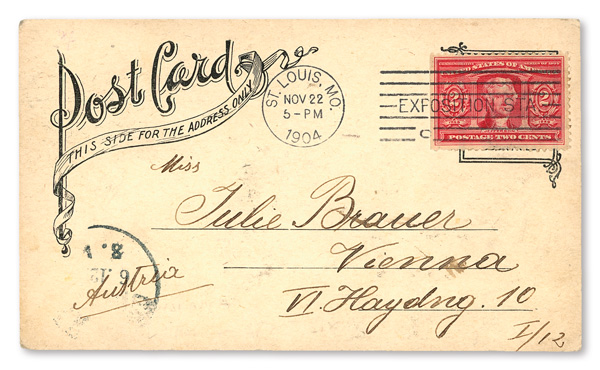 Post Card
THIS SIDE FOR THE ADDRESS ONLY
ST. LOUIS, MO.
NOV 22
5-PM
1904
EXPOSITION STA
UNITED STATES OF AMERICA
2 2
POSTAGE TWO CENTS
Miss
Julie Brauer
Vienna
Austria
VI. Haydng. 10
I/12